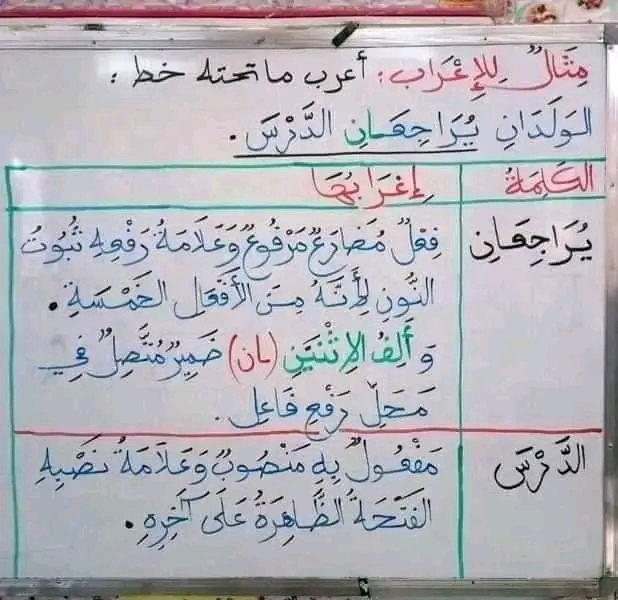 مِثَالٌ لِلإِعْرَابِ: أعرب ما تحته خط:
الوَلَدَانِ يُرَاجِعَانِ الدَّرْسَ.
الكَلِمَةُ إِعْرَابُهَا
يُرَاجِعَانِ فِعْلٌ مُضَارِعٌ مَرْفُوعٌ وَعَلَامَةُ رَفْعِهِ ثُبُوتُ
النُّونِ لِأَنَّهُ مِنَ الأَفْعَالِ الخَمْسَةِ.
وَأَلِفُ الإِثْنَيْنِ (ـَان) ضَمِيرٌ مُتَّصِلٌ فِي
مَحَلِّ رَفْعِ فَاعِل.
الدَّرْسَ مَفْعُولٌ بِهِ مَنْصُوبٌ وَعَلَامَةُ نَصْبِهِ
الفَتْحَةُ الظَّاهِرَةُ عَلَى آخِرِهِ.